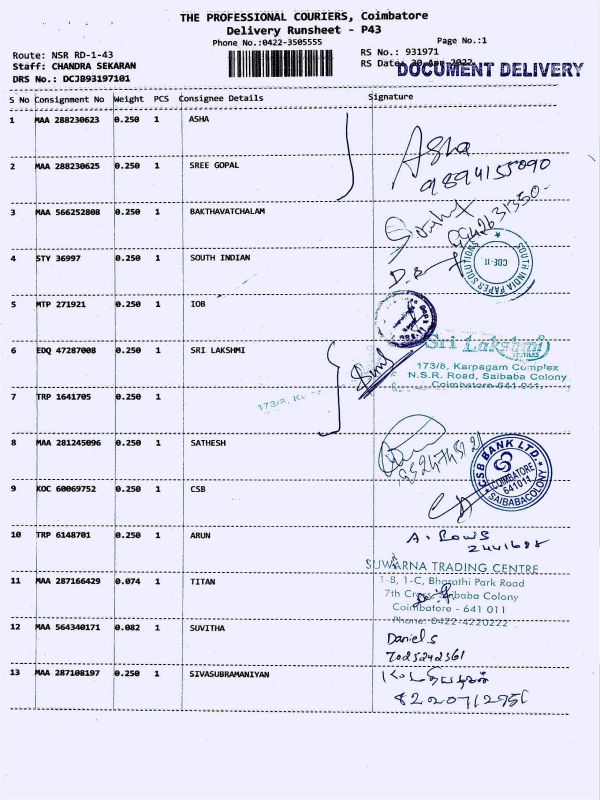 THE PROFESSIONAL COURIERS, Coimbatore
Delivery Runsheet - P43
Phone No.:0422-3505555
Page No.:1
Route: NSR RD-1-43
RS No.: 931971
Staff: CHANDRA SEKARAN
RS Date: 30-Apr-2022
DOCUMENT DELIVERY
DRS No.: DCJB93197101
S No Consignment No Weight PCS Consignee Details Signature
1 MAA 288230623 0.250 1 ASHA
Asha
9894155090
2 MAA 288230625 0.250 1 SREE GOPAL
3 MAA 566252808 0.250 1 BAKTHAVATCHALAM
4 STY 36997 0.250 1 SOUTH INDIAN
SOUTH INDIA PAPER SOLUTIONS
CBE-11
5 MTP 271921 0.250 1 IOB
6 EDQ 47287008 0.250 1 SRI LAKSHMI
Sri Lakshmi
173/8, Karpagam Complex
N.S.R. Road, Saibaba Colony
Coimbatore-641 011.
7 TRP 1641705 0.250 1
173/8, K
8 MAA 281245096 0.250 1 SATHESH
9 KOC 60069752 0.250 1 CSB
CSB BANK LTD.
COIMBATORE
641011
SAIBABACOLONY
10 TRP 6148701 0.250 1 ARUN
2441688
SUWARNA TRADING CENTRE
11 MAA 287166429 0.074 1 TITAN
1-B, 1-C, Bharathi Park Road
7th Cross, Saibaba Colony
Coimbatore - 641 011
Phone: 0422-4220222
12 MAA 564340171 0.082 1 SUVITHA
Daniel.S
7025242361
13 MAA 287108197 0.250 1 SIVASUBRAMANIYAN
8220712951